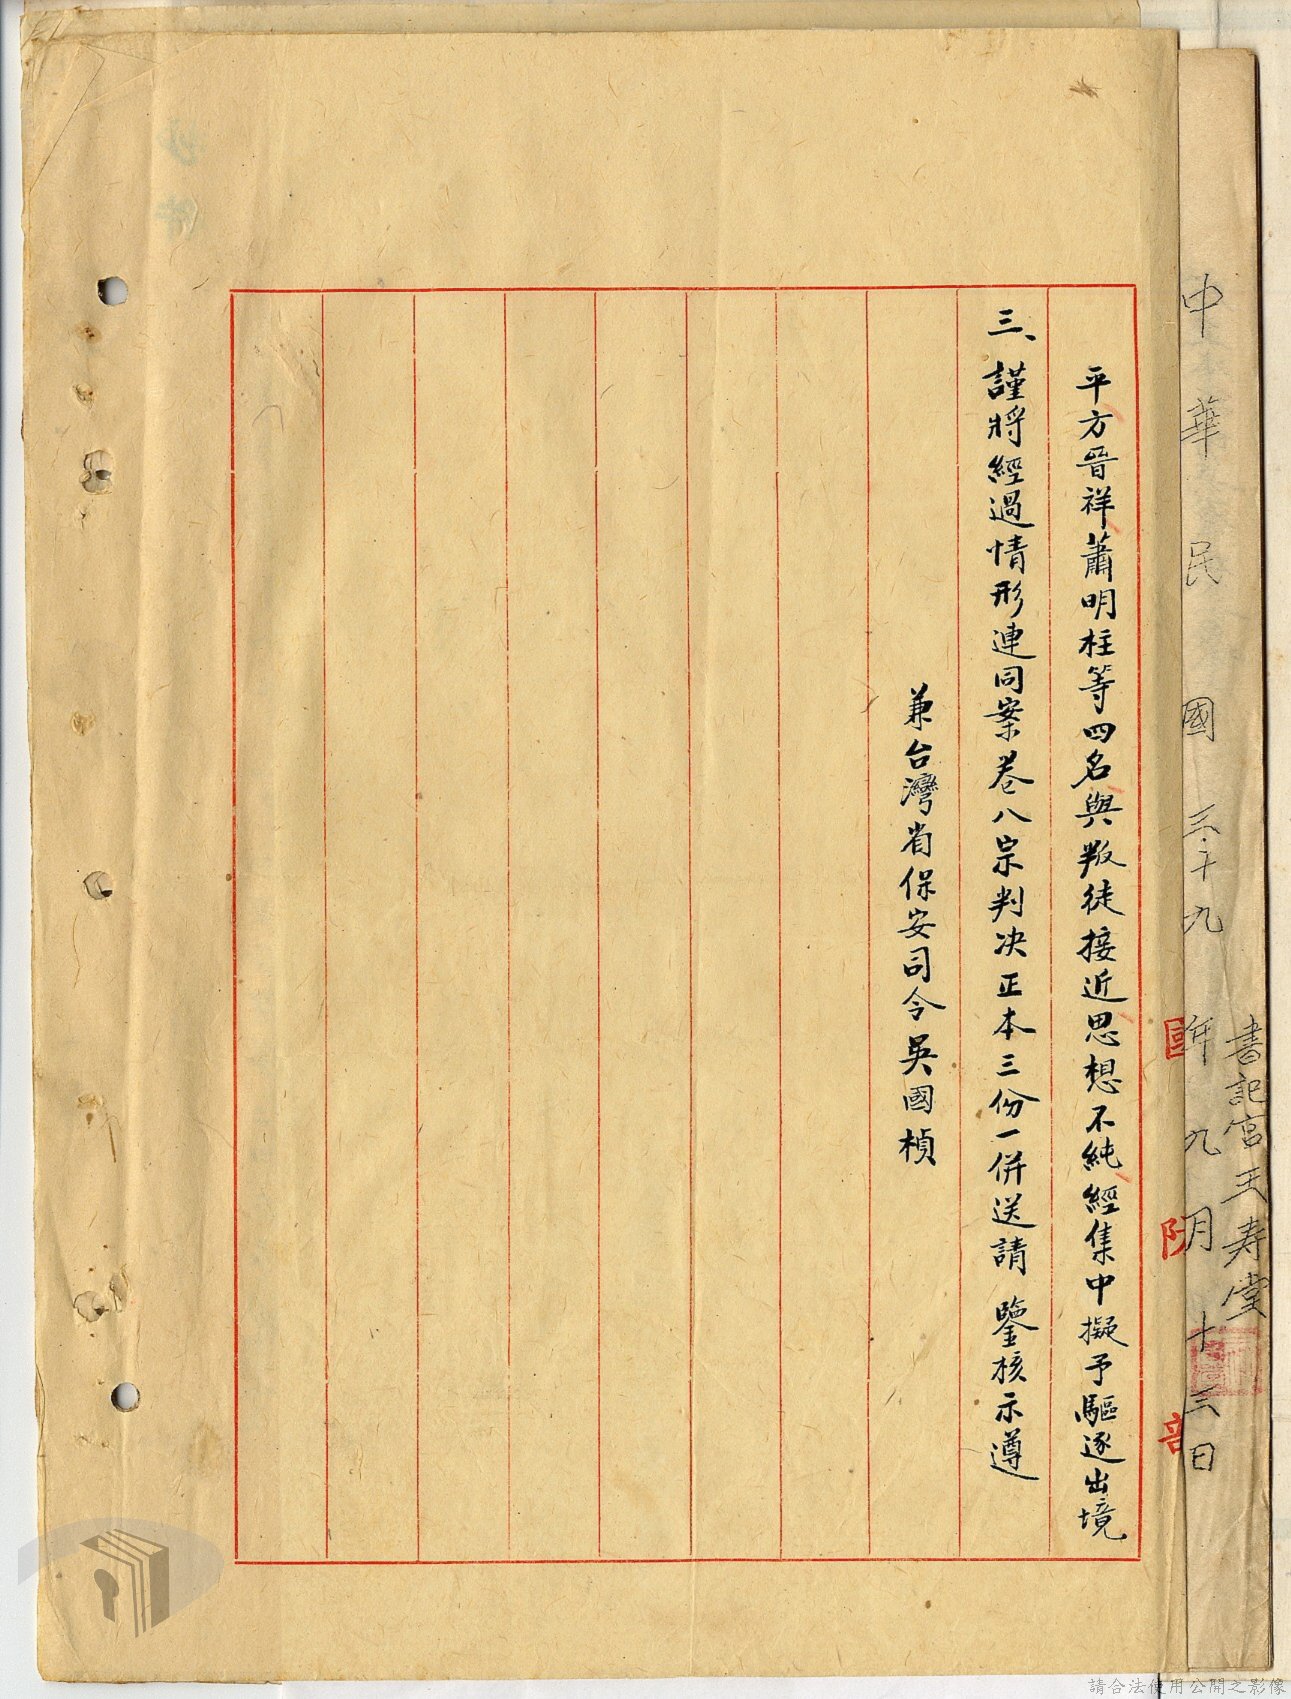 書記官王寿堂
中華民國三十九年九月十三日
平方晉祥蕭明柱等四名與叛徒接近思想不純經集中擬予驅逐出境
三、謹將經過情形連同案卷八宗判决正本三份一併送請 鑒核示遵
兼台灣省保安司令吳國楨
請合法使用公開之影像